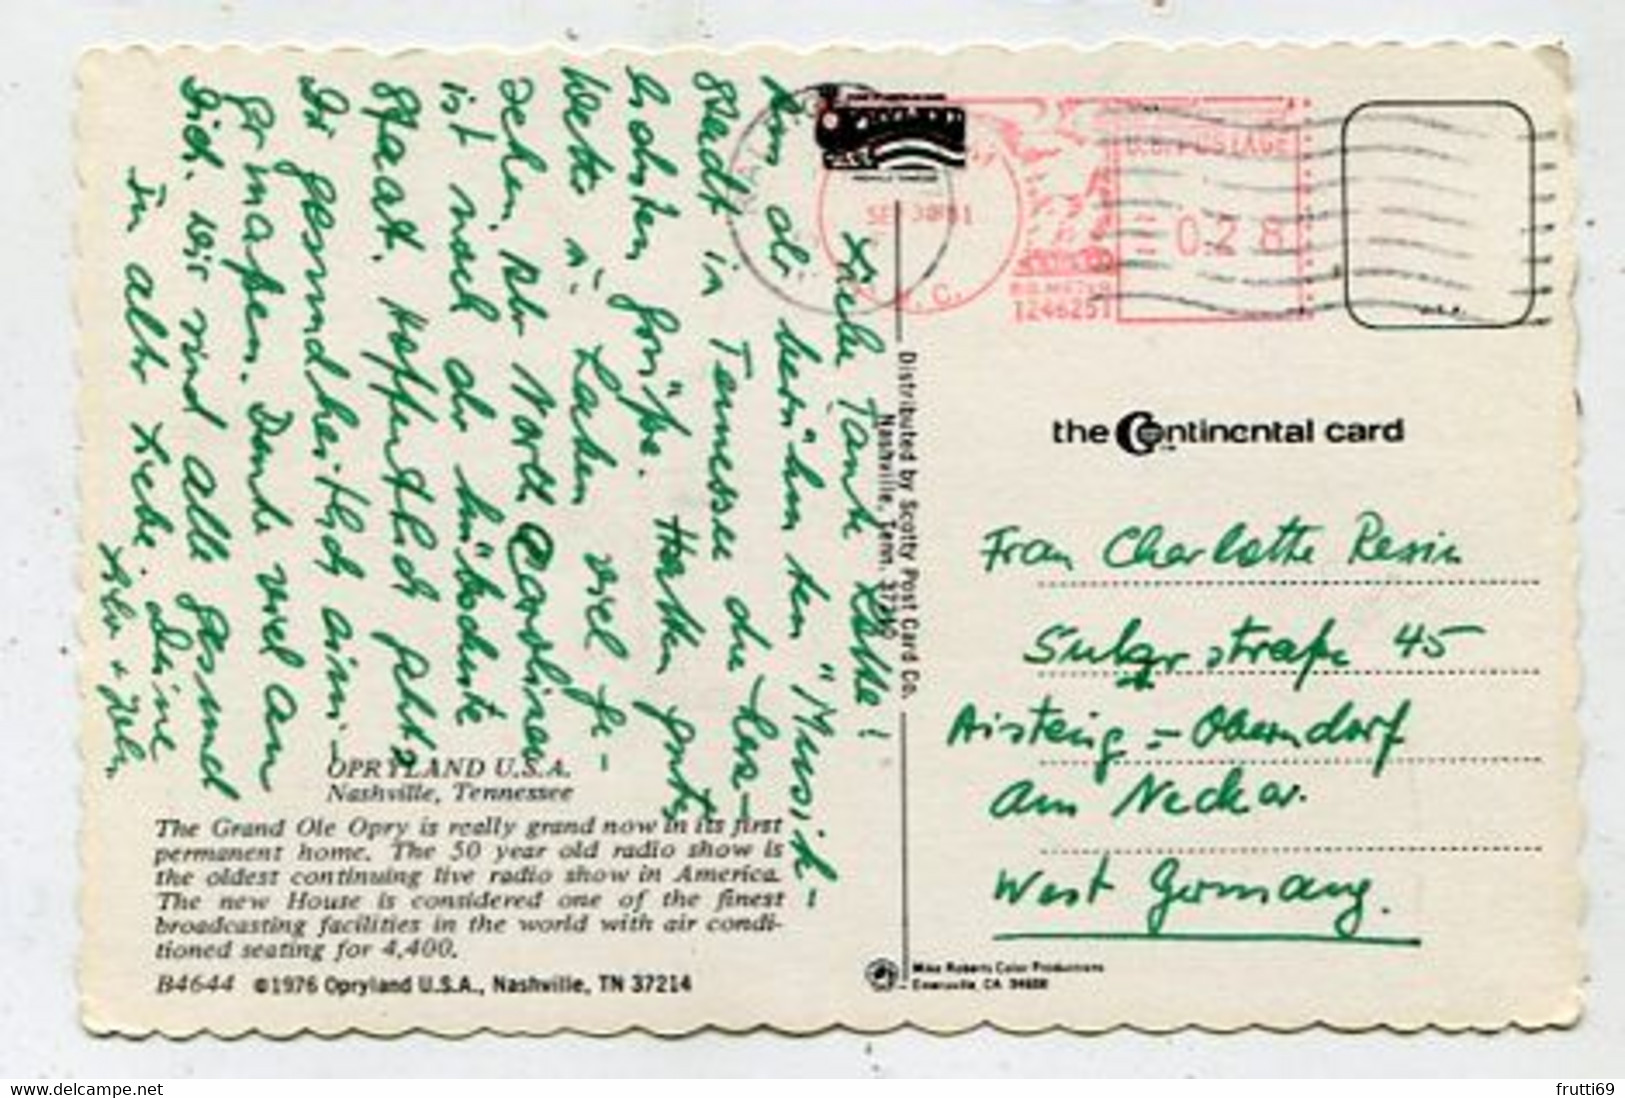 Liebe Tante Lotte!
Von der berühmten "Musik-
stadt in Tennessee die herz-
lichsten Grüße. Hatten gutes
Wetter u. haben viel ge-
sehen. Aber North Carolina
ist noch der hübscheste
Staat. Hoffentlich geht's
Dir gesundheitlich einiger-
maßen. Denke viel an
Dich. Wir sind alle gesund
In alter Liebe Deine
OPRYLAND U.S.A.
Nashville, Tennessee
The Grand Ole Opry is really grand now in its first
permanent home. The 50 year old radio show is
the oldest continuing live radio show in America.
The new House is considered one of the finest
broadcasting facilities in the world with air condi-
tioned seating for 4,400.
B4644 ©1976 Opryland U.S.A., Nashville, TN 37214
Distributed by Scotty Post Card Co.
Nashville, Tenn. 37210
U.S. POSTAGE
SEP 30 '81
0.28
N.C.
P.B. METER
1246251
the Continental card
Frau Charlotte Resin
Sulzerstraße 45
Aisteig - Oberndorf
am Neckar.
West Germany.
Mike Roberts Color Productions
Emeryville, CA 94608
frutti69